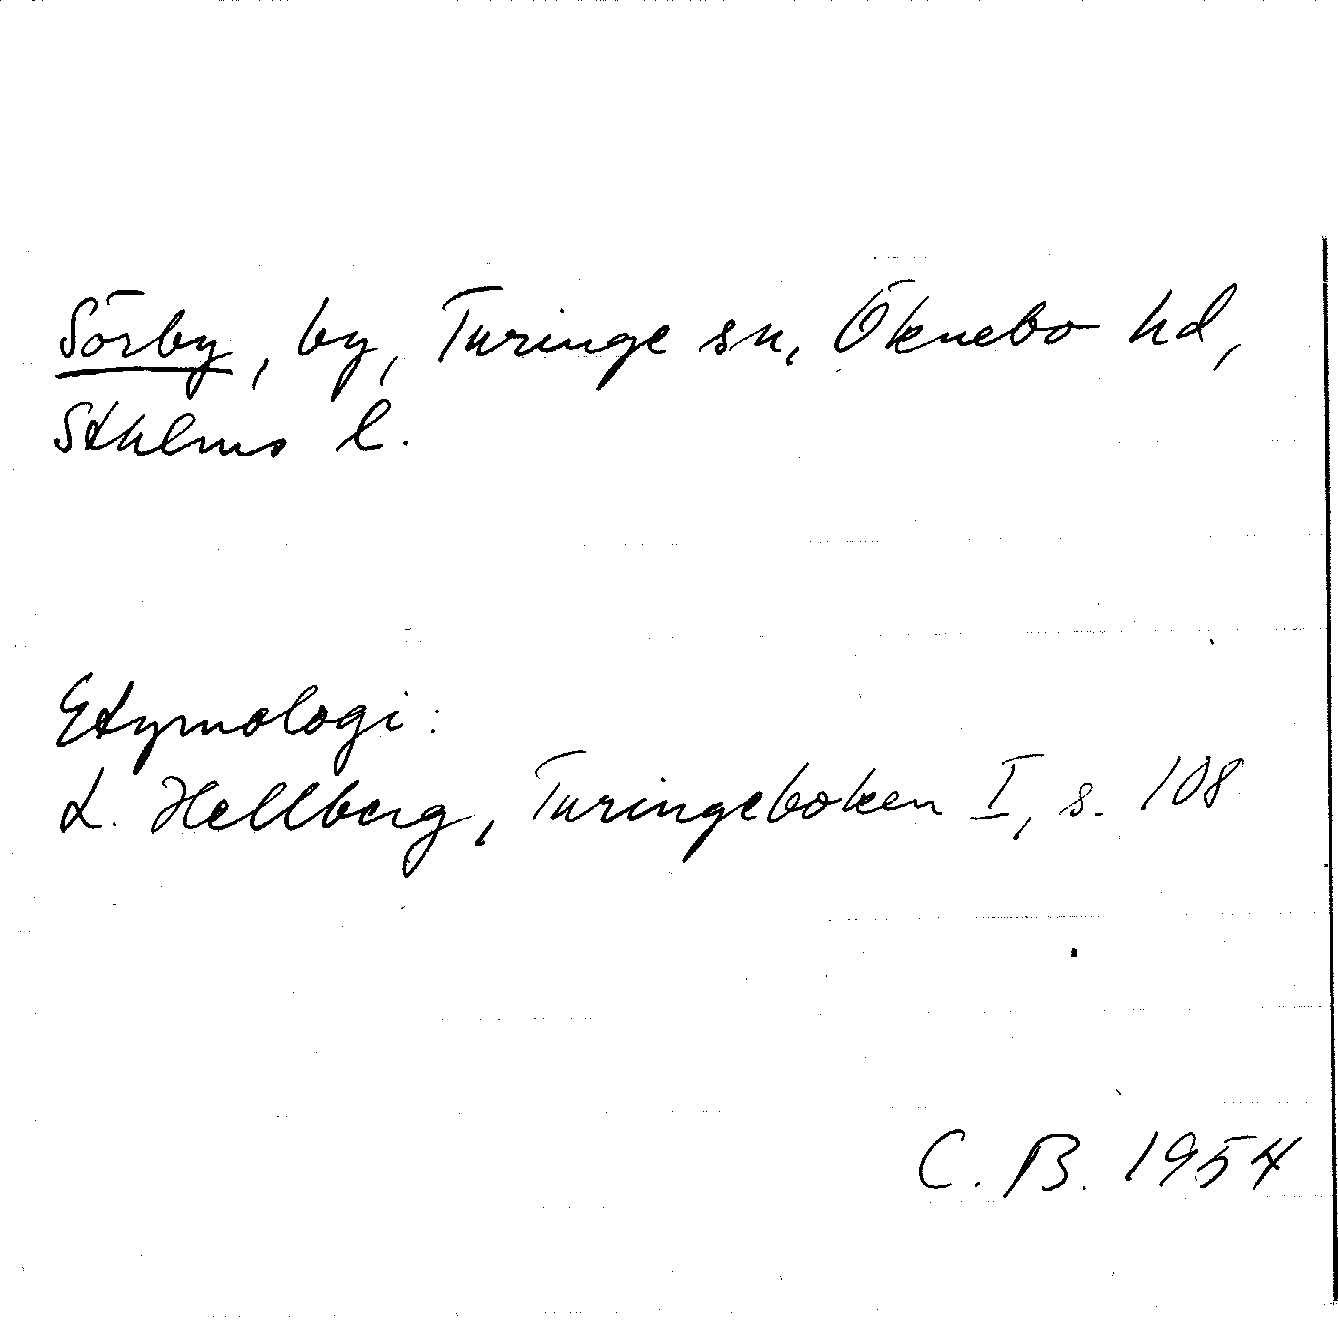 Sörby, by, Turinge sn, Öknebo hd,
Sthlms l.
Etymologi:
L. Hellberg, Turingeboken I, s. 108
C. B. 1954